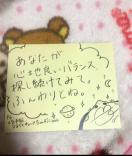 あなたが
心地良いバランス
探し続けてみて。
ふんわりとね。